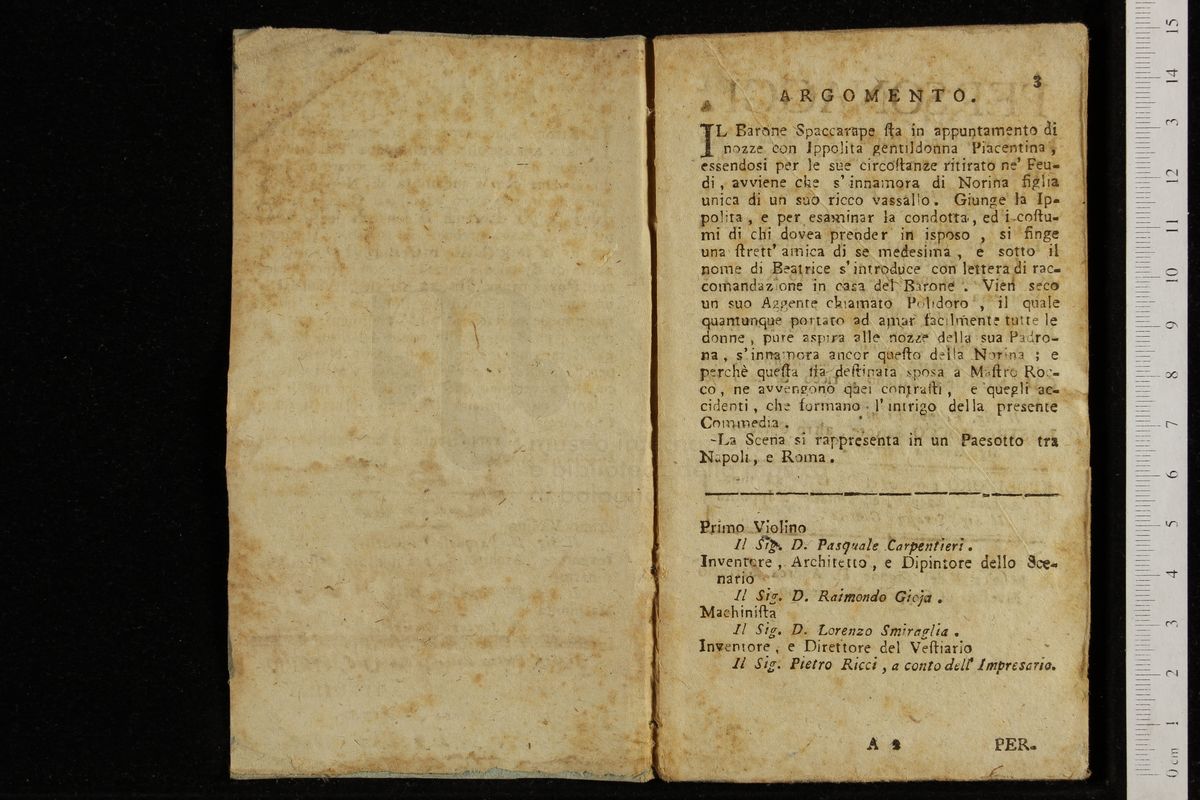 3
ARGOMENTO.
IL Barone Spaccarape ſta in appuntamento di
nozze con Ippolita gentildonna Piacentina,
essendosi per le sue circoſtanze ritirato ne' Feu-
di, avviene che s'innamora di Norina figlia
unica di un suo ricco vassallo. Giunge la Ip-
polita, e per esaminar la condotta, ed i coſtu-
mi di chi dovea prender in isposo, si finge
una ſtrett' amica di se medesima, e sotto il
nome di Beatrice s'introduce con lettera di rac-
comandazione in casa del Barone. Vien seco
un suo Aggente chiamato Polidoro, il quale
quantunque portato ad amar facilmente tutte le
donne, pure aspira alle nozze della sua Padro-
na, s'innamora ancor queſto della Norina; e
perchè queſta ſia deſtinata sposa a Maſtro Roc-
co, ne avvengono quei contraſti, e quegli ac-
cidenti, che formano l'intrigo della presente
Commedia.
-La Scena si rappresenta in un Paesotto tra
Napoli, e Roma.
Primo Violino
Il Sig. D. Pasquale Carpentieri.
Inventore, Architetto, e Dipintore dello Sce-
nario
Il Sig. D. Raimondo Gioja.
Machiniſta
Il Sig. D. Lorenzo Smiraglia.
Inventore, e Direttore del Veſtiario
Il Sig. Pietro Ricci, a conto dell' Impresario.
A 2 PER-
15
14
13
12
11
10
9
8
7
6
5
4
3
2
1
0 cm